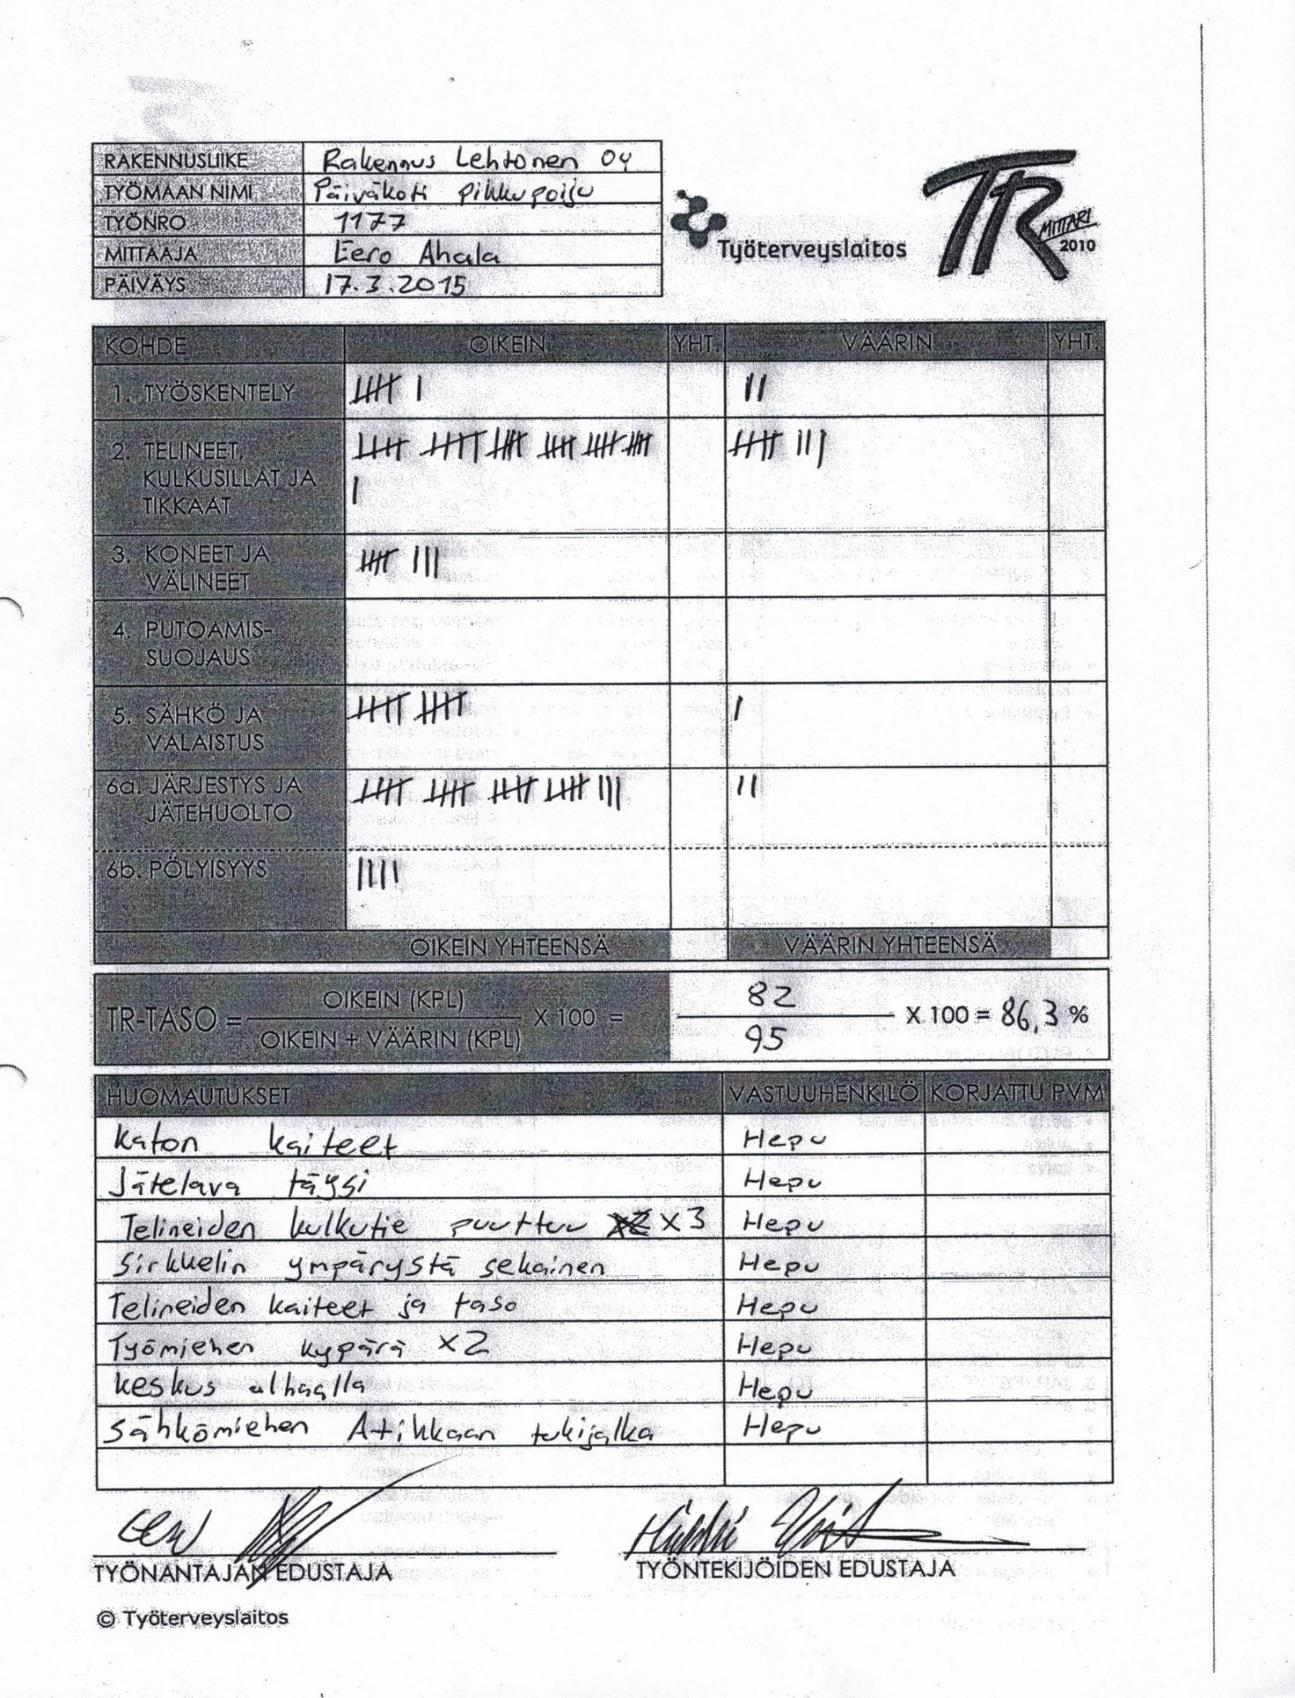 RAKENNUSLIIKE Rakennus Lehtonen Oy
TYÖMAAN NIMI Päiväkoti pikkupoiju
TYÖNRO 1177
MITTAAJA Eero Ahala
PÄIVÄYS 17.3.2015
Työterveyslaitos
TR MITTARI 2010
KOHDE OIKEIN YHT. VÄÄRIN YHT.
1. TYÖSKENTELY
2. TELINEET,
KULKUSILLAT JA
TIKKAAT
3. KONEET JA
VÄLINEET
4. PUTOAMIS-
SUOJAUS
5. SÄHKÖ JA
VALAISTUS
6a. JÄRJESTYS JA
JÄTEHUOLTO
6b. PÖLYISYYS
OIKEIN YHTEENSÄ VÄÄRIN YHTEENSÄ
OIKEIN (KPL) 82
TR-TASO = X 100 = X 100 = 86,3 %
OIKEIN + VÄÄRIN (KPL) 95
HUOMAUTUKSET VASTUUHENKILÖ KORJATTU PVM
Katon kaiteet Hepu
Jätelava täysi Hepu
Telineiden kulkutie puuttuu x3 Hepu
Sirkkelin ympärystä sekainen Hepu
Telineiden kaiteet ja taso Hepu
Työmiehen kypärä x2 Hepu
keskus alhaalla Hepu
Sähkömiehen Atikkaan tukijalka Hepu
TYÖNANTAJAN EDUSTAJA TYÖNTEKIJÖIDEN EDUSTAJA
© Työterveyslaitos